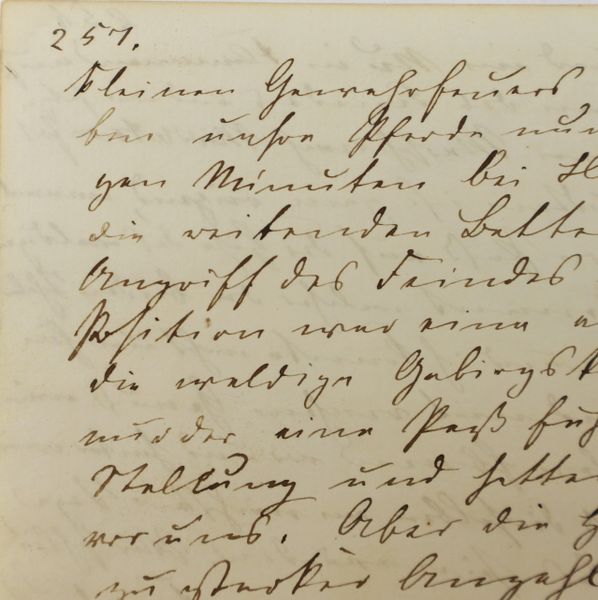 257.
kleinen Gewehrfeuers
ben unsre Pferde
gen Minuten bei
die reitenden Batte
Angriff des Feindes
Position war eine
die waldige Gebirgsk
eine Paß
Stellung und hatte
vor uns. Aber die
zu starker Anzahl